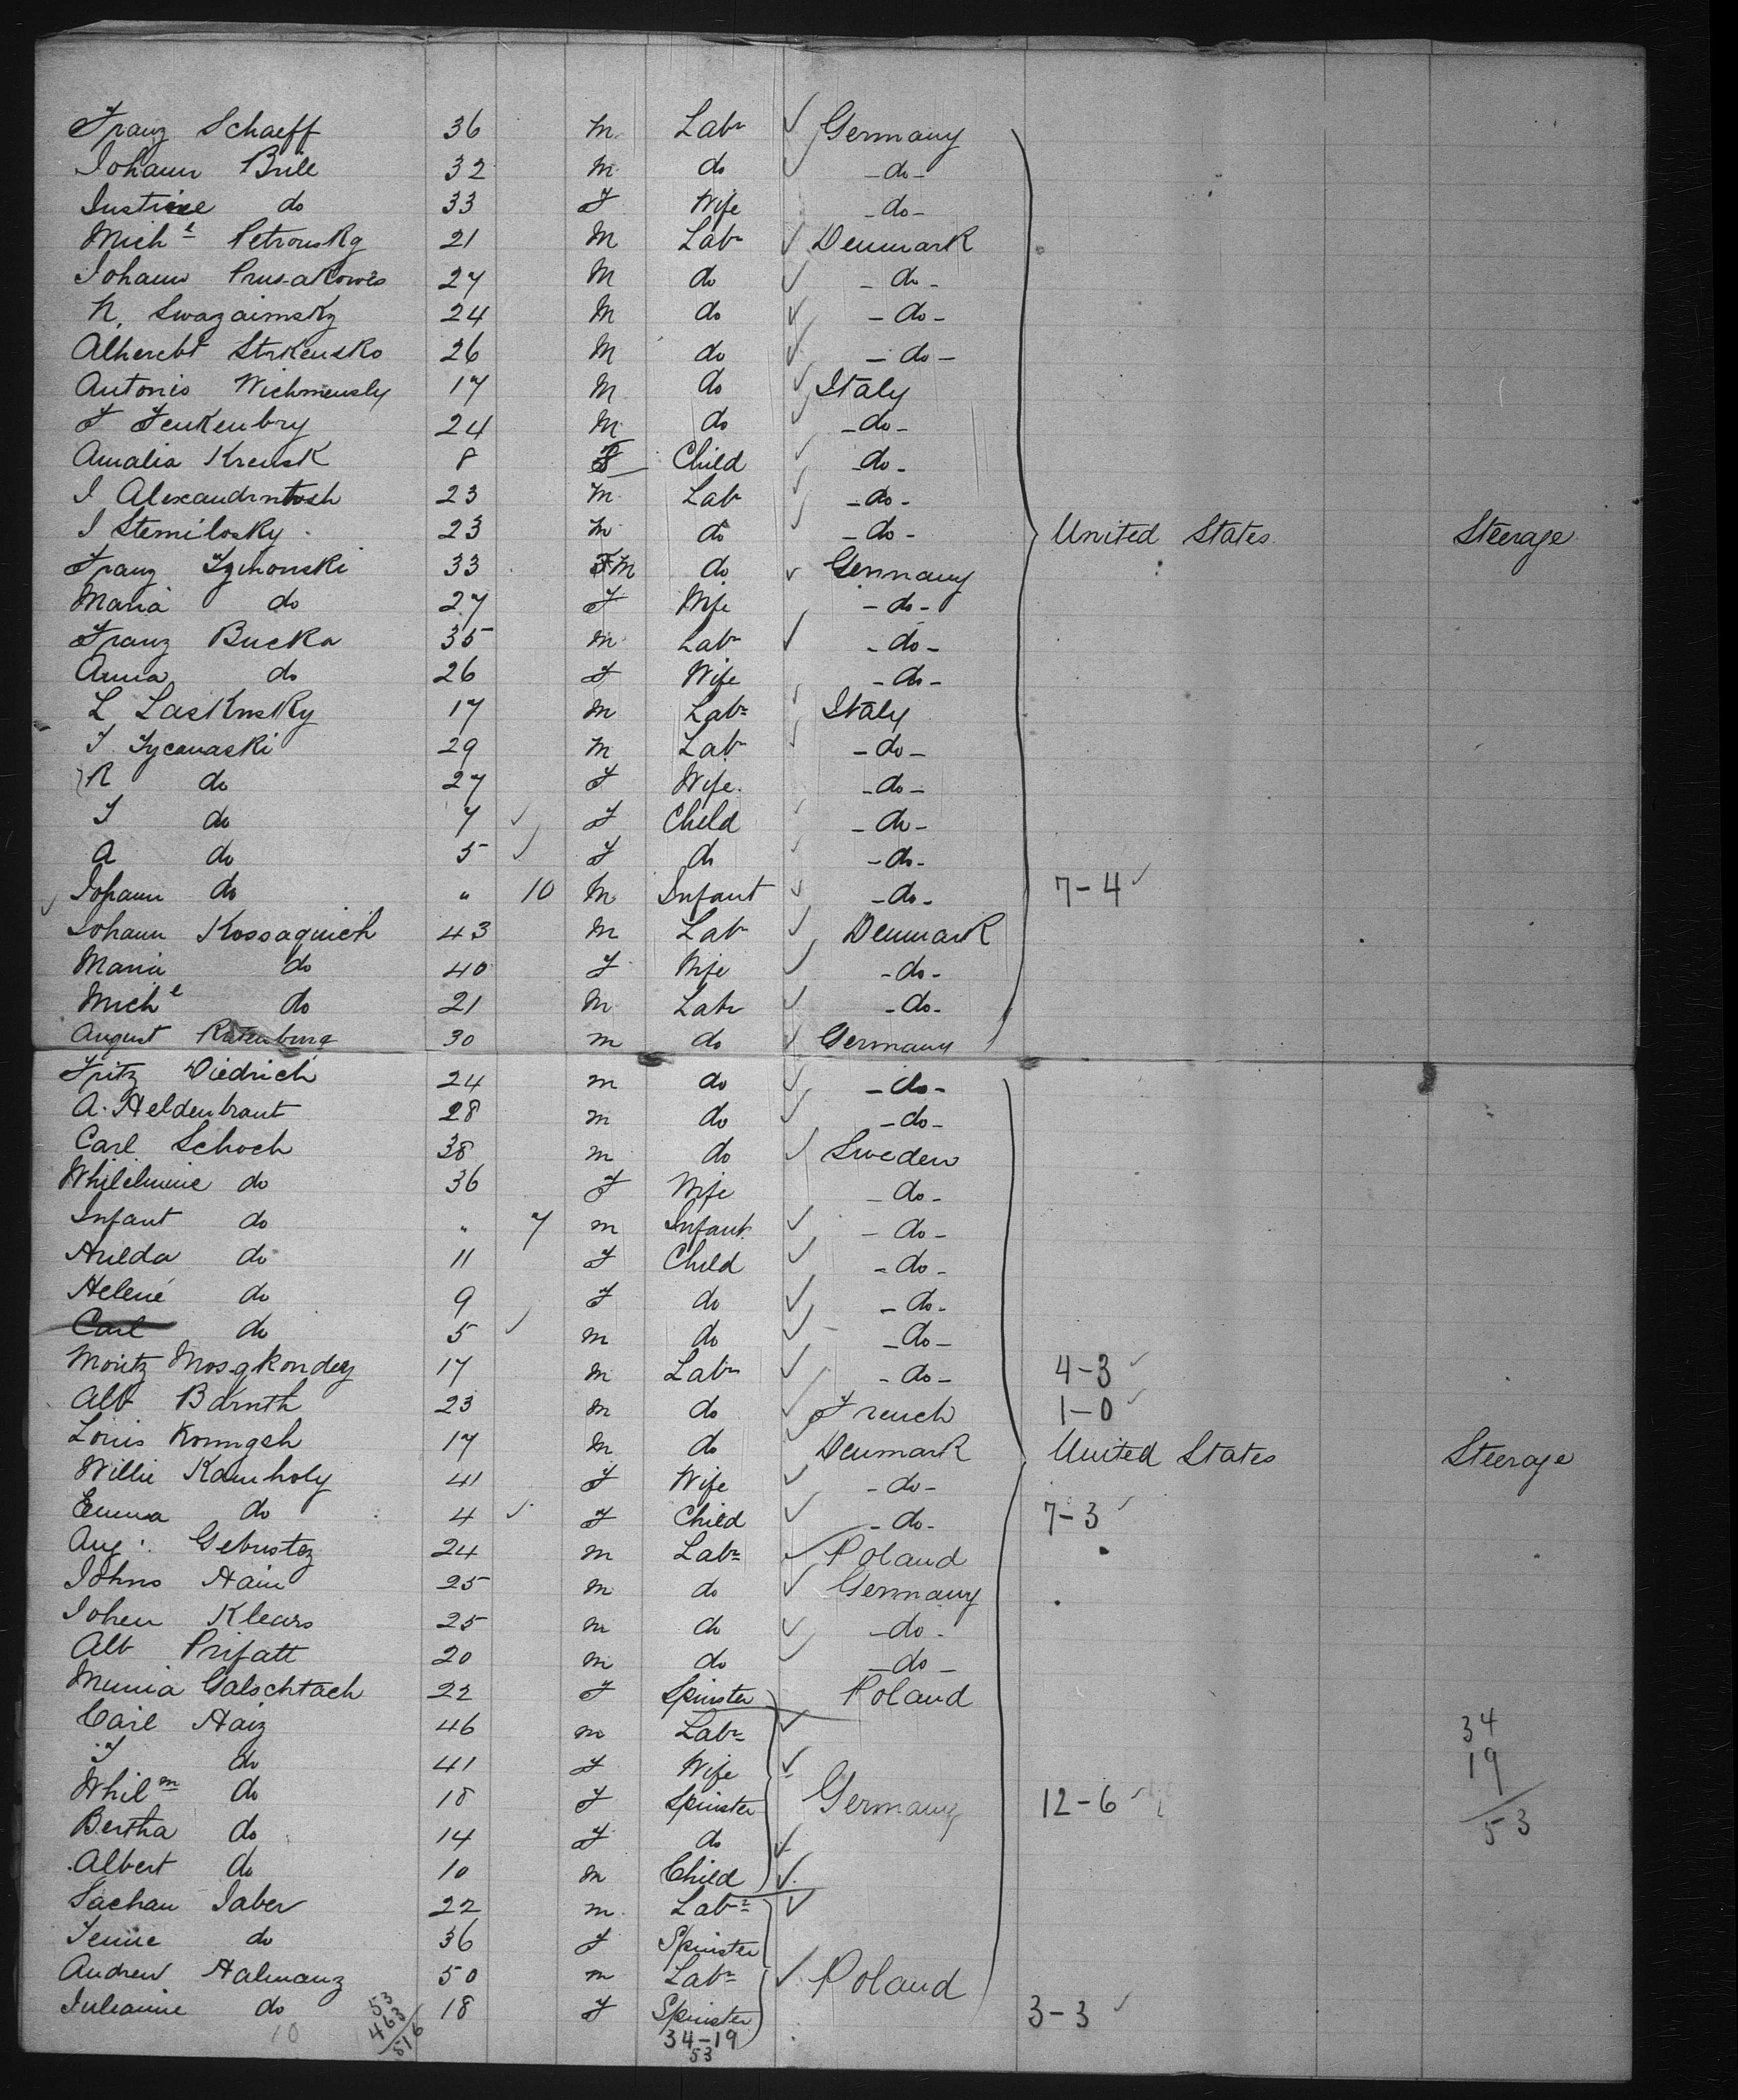 Franz Schaeff 36 m Labr Germany
Johann Brill 32 m do -do-
Justine do 33 F Wife -do-
Michl Petrousky 21 M Labr Denmark
Johann Prusakowis 27 M do -do-
N. Swazaimsky 24 M do -do-
Alherebt Strkensko 26 M do -do-
Antonio Wichmensly 17 M do Italy
F Fenkenbry 24 M do -do-
Amalia Krensk 8 F Child -do-
J Alexandrntosh 23 m Labr -do-
J Stemilosky 23 m do -do- United States Steerage
Franz Izmonski 33 M do Germany
Maria do 27 F Wife -do-
Franz Bucka 35 m Labr -do-
Anna do 26 F Wife -do-
L Lasknsky 17 m Labr Italy
T. Tycanaski 29 m Labr -do-
R do 27 F Wife -do-
T do 7 F Child -do-
A do 5 F do -do-
Johann do " 10 M Infant -do- 7-4
Johann Kossaquich 43 m Labr Denmark
Maria do 40 F Wife -do-
Michl do 21 M Labr -do-
August Ratenburg 30 m do Germany
Fritz Diedrich 24 m do -do-
A. Heldenbrant 28 m do -do-
Carl Schoch 38 m do Sweden
Whilelmine do 36 F Wife -do-
Infant do " 7 m Infant -do-
Hulda do 11 F Child -do-
Helene do 9 F do -do-
Carl do 5 m do -do-
Moritz Mosgkondey 17 m Labr -do- 4-3
Alb Barnth 23 m do French 1-0
Louis Konngsh 17 m do Denmark United States Steerage
Willie Kamholy 41 F Wife -do-
Emma do 4 F Child -do- 7-3
Aug. Gebustez 24 m Labr Poland
Johns Hain 25 m do Germany
Johen Klears 25 m do -do-
Alb Prifatt 20 m do -do-
Munia Galschtach 22 F Spinster Poland
Carl Haiz 46 m Labr 34
F do 41 F Wife 19
Whilm do 18 F Spinster Germany 12-6
Bertha do 14 F do 53
Albert do 10 m Child
Sachau Jaber 22 m Labr
Jenne do 36 F Spinster
Andrew Halmanz 50 m Labr Poland
Julianne do 53 18 F Spinster 3-3
10 463 34-19
516 53